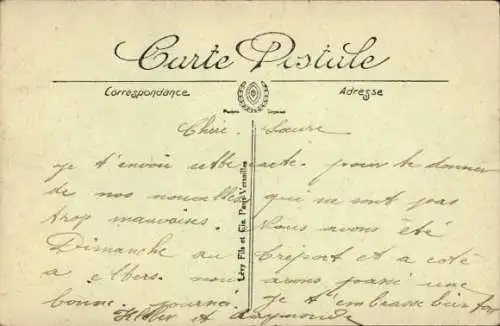 Carte Postale
Correspondance Adresse
Lévy Fils et Cie, Paris-Versailles
Chère Laure
je t'envoie cette carte pour te donner
de nos nouvelles qui ne sont pas
trop mauvaises. Nous avons été
Dimanche au Tréport et a coté
a Mers nous avons passé une
bonne journée je t'embrasse bien fort
et Raymonde